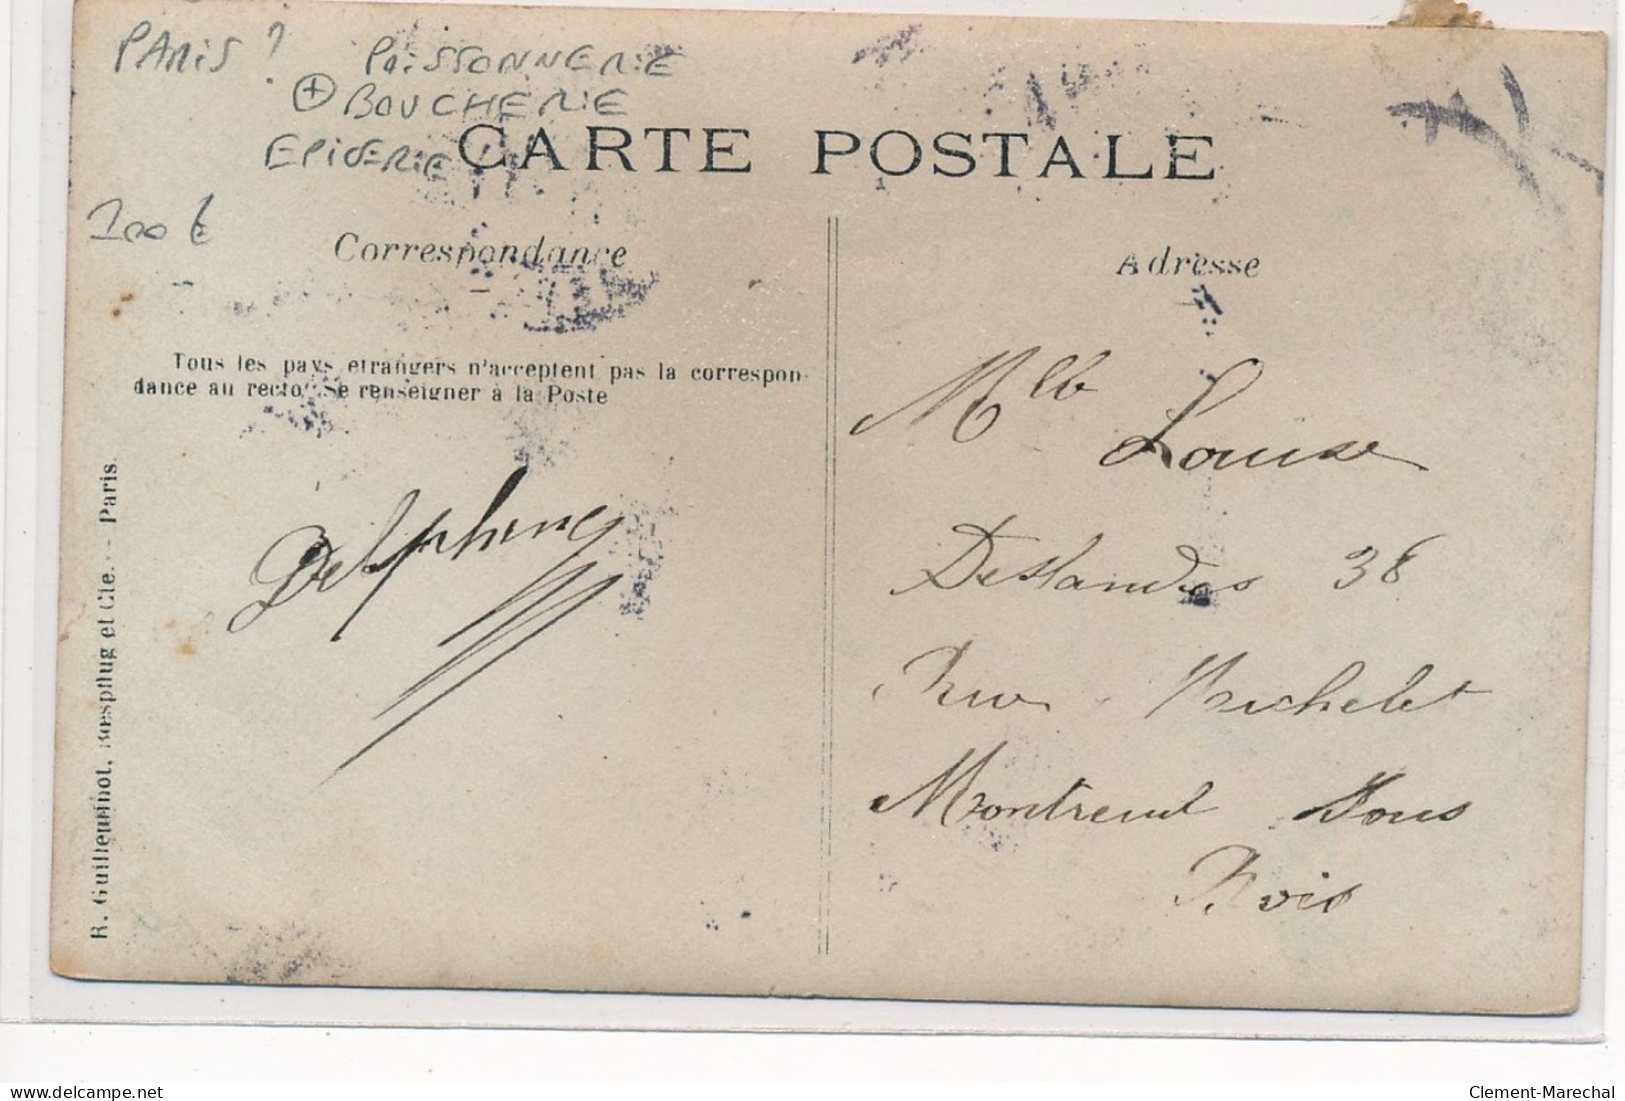 PARIS ? POISSONNERIE
+ BOUCHERIE
EPICERIE
CARTE POSTALE
100 €
Correspondance
Adresse
Tous les pays etrangers n'acceptent pas la correspon-
dance au recto. Se renseigner à la Poste
R. Guilleminot, Bœspflug et Cie. - Paris.
Delphine
Mlle Louise
Deslandes 38
Rue Michelet
Montreuil Sous
Bois
delcampe.net
Clement-Marechal